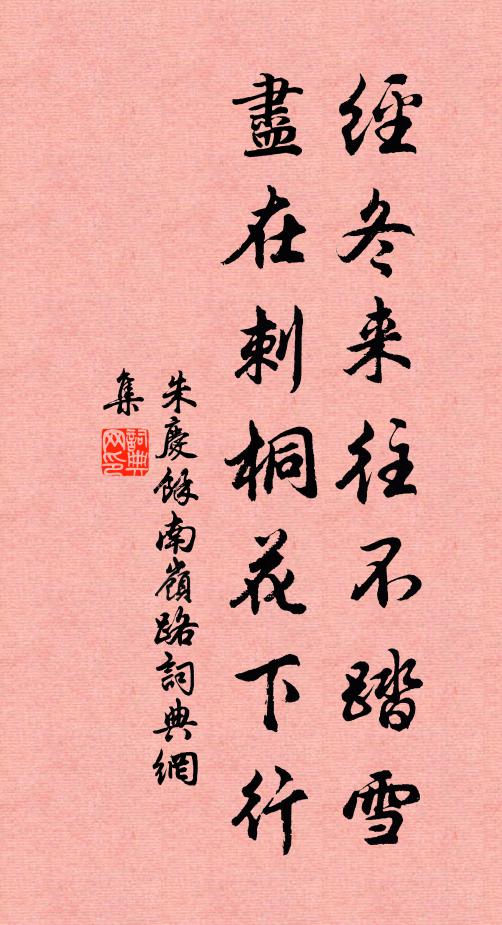 經冬来往不踏雪
盡在刺桐花下行
朱慶餘南嶺路詞典網
集
詞典
网印